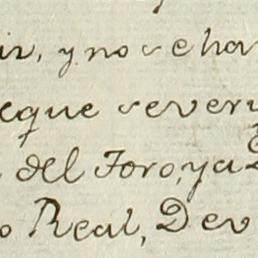 ir, y no se ha
eque se veri
del Foro, ya
o Real, Dev